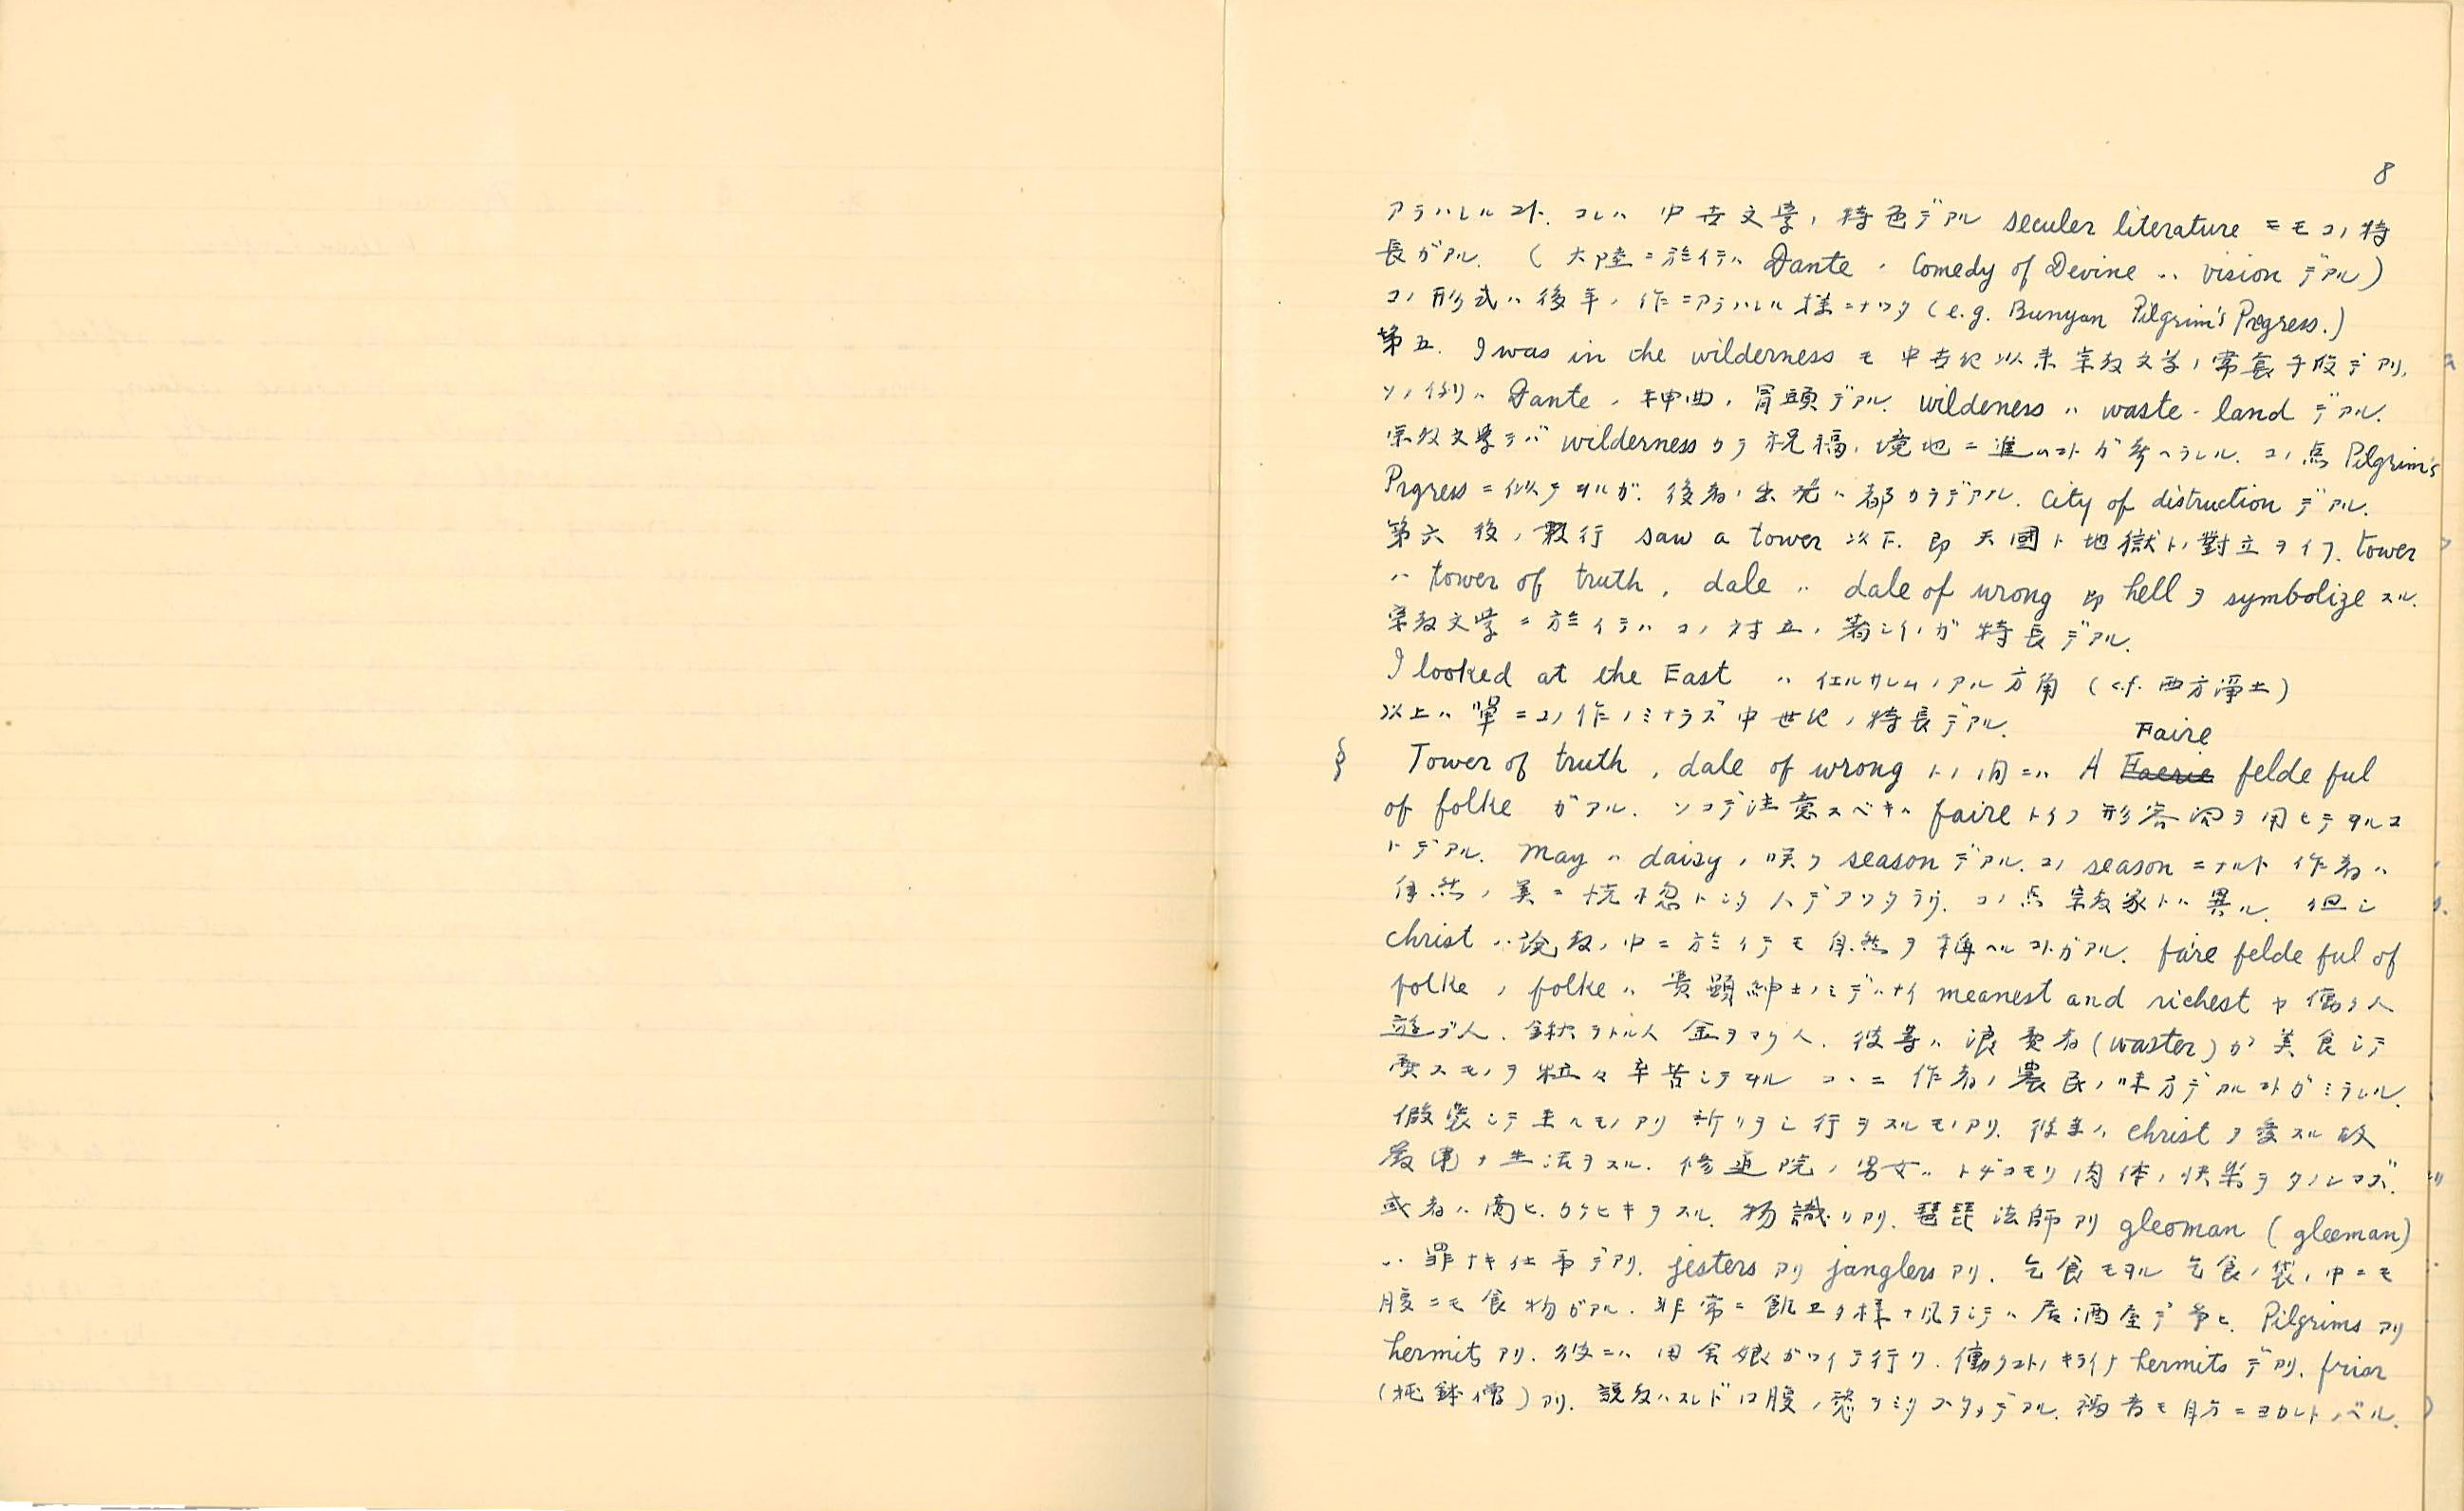 8
アラハレルコト. コレハ 中古文學ノ特色デアル seculer literature ニモコノ特
長ガアル. (大陸ニ於イテハ Dante ノ Comedy of Devine ハ vision デアル)
コノ形式ハ後年ノ作ニアラハレル様ニナツタ (e.g. Bunyan Pilgrim's Progress.)
第五. I was in the wilderness モ 中古紀以来宗教文学ノ常套手段デアリ,
ソノ例ハ Dante ノ神曲ノ冒頭デアル. wildeness ハ waste-land デアル.
宗教文學デハ wilderness カラ祝福ノ境地ニ進ムコトガ考ヘラレル. コノ点 Pilgrim's
Prgress ニ似テヰルガ. 後者ノ出発ハ都カラデアル. City of distruction デアル.
第六 後ノ数行 saw a tower 以下. 即 天國ト地獄トノ對立ヲイフ. tower
ハ tower of truth, dale ハ dale of wrong 即 hell ヲ symbolize スル.
宗教文学ニ於イテハコノ対立ノ著シイノガ特長デアル.
I looked at the East ハ イエルサレムノアル方角 (c.f. 西方淨土)
以上ハ單ニコノ作ノミナラズ中世紀ノ特長デアル.
Faire
§ Tower of truth, dale of wrong トノ間ニハ A Faerie felde ful
of folke ガアル. ソコデ注意スベキハ faire トイフ形容詞ヲ用ヒテヰルコ
トデアル. May ハ daisy ノ咲ク season デアル. コノ season ニナルト作者ハ
自然ノ美ニ恍惚トシタ人デアツタラウ. コノ点宗教家トハ異ル. 但シ
christ ハ説教ノ中ニ於イテモ自然ヲ稱ヘルコトガアル. faire felde ful of
folke ノ folke ハ 貴顕紳士ノミデハナイ meanest and richest ヤ 働ク人
遊ブ人. 鍬ヲトル人 金ヲマク人. 彼等ハ浪費者 (waster) ガ美食シテ
費スモノヲ粒々辛苦シテヰル コヽニ作者ノ農民ノ味方デアルコトガミラレル.
假装シテ来ルモノアリ 祈リヲシ行ヲスルモノアリ. 彼等ハ christ ヲ愛スル故
厳重ナ生活ヲスル. 修道院ノ男女ハトヂコモリ肉体ノ快楽ヲタノシマズ.
或者ハ商ヒ. カケヒキヲスル. 物識リアリ. 琵琶法師アリ gleoman (gleeman)
ハ 罪ナキ仕事デアリ. jesters アリ janglers アリ. 乞食モヰル 乞食ノ袋ノ中ニモ
腹ニモ食物ガアル. 非常ニ飢エタ様ナ風ヲシテハ居酒屋デ争ヒ. Pilgrims アリ
hermits アリ. 彼ニハ田舎娘ガツイテ行ク. 働クコトノキライナ hermits デアリ. friar
(托鉢僧) アリ. 説教ハスレド口腹ノ慾ヲミタスタメデアル. 福音モ自分ニヨカレトノベル.